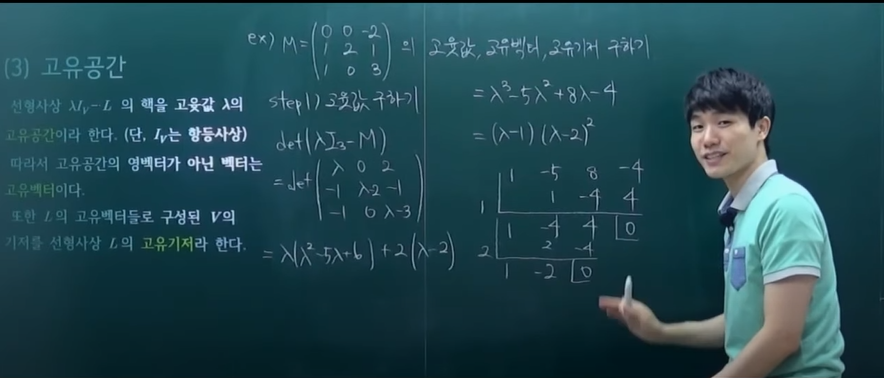 (3) 고유공간
선형사상 λI_V-L 의 핵을 고윳값 λ의
고유공간이라 한다. (단, I_V는 항등사상)
따라서 고유공간의 영벡터가 아닌 벡터는
고유벡터이다.
또한 L의 고유벡터들로 구성된 V의
기저를 선형사상 L의 고유기저라 한다.
ex) M= ( 0 0 -2 의 고윳값, 고유벡터, 고유기저 구하기
1 2 1
1 0 3 )
step1) 고윳값 구하기
det(λI₃-M)
=det ( λ 0 2
-1 λ-2 -1
-1 0 λ-3 )
=λ(λ²-5λ+6)+2(λ-2)
=λ³-5λ²+8λ-4
=(λ-1)(λ-2)²
1 -5 8 -4
1 1 -4 4
1 -4 4 0
2 2 -4
1 -2 0